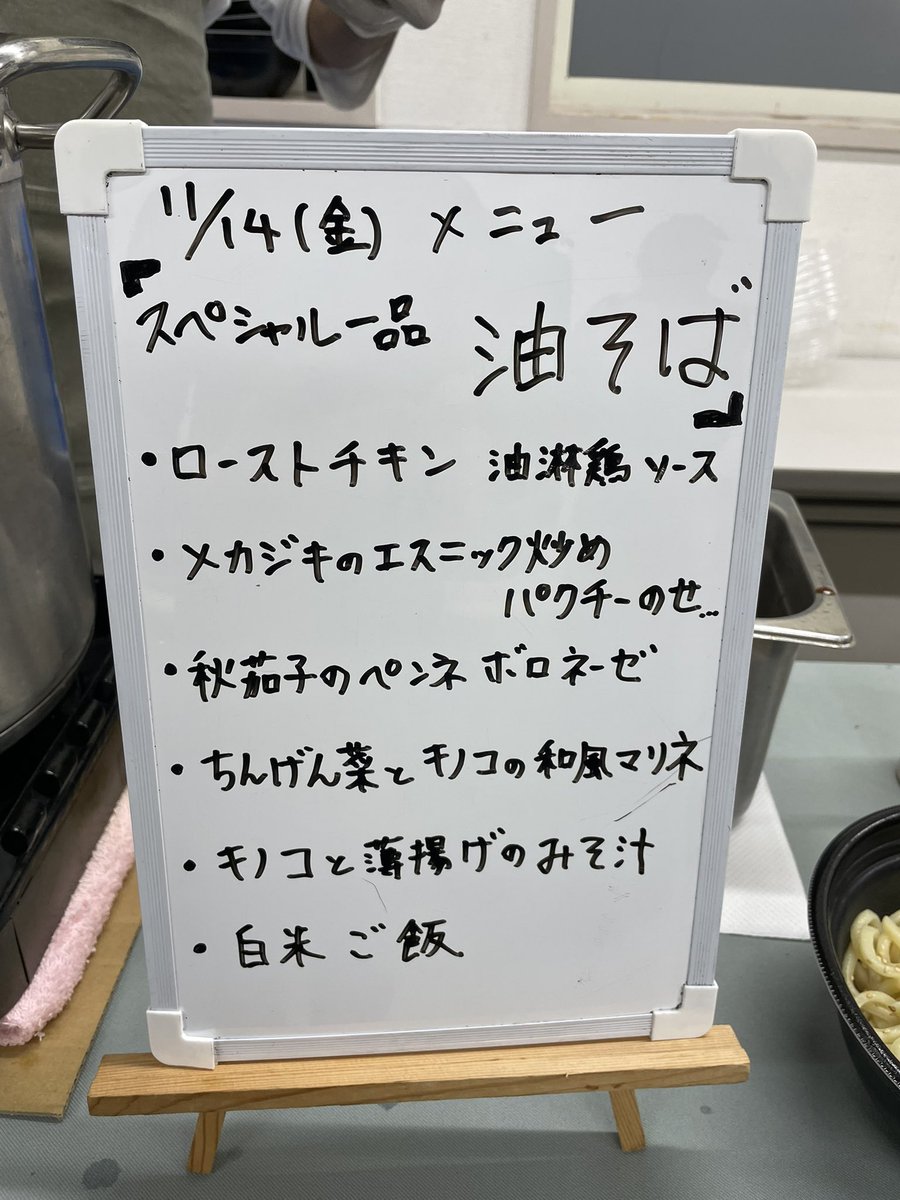 11/14(金) メニュー
「スペシャル一品 油そば」
・ローストチキン 油淋鶏ソース
・メカジキのエスニック炒め
パクチーのせ...
・秋茄子のペンネ ボロネーゼ
・ちんげん菜とキノコの和風マリネ
・キノコと薄揚げのみそ汁
・白米ご飯